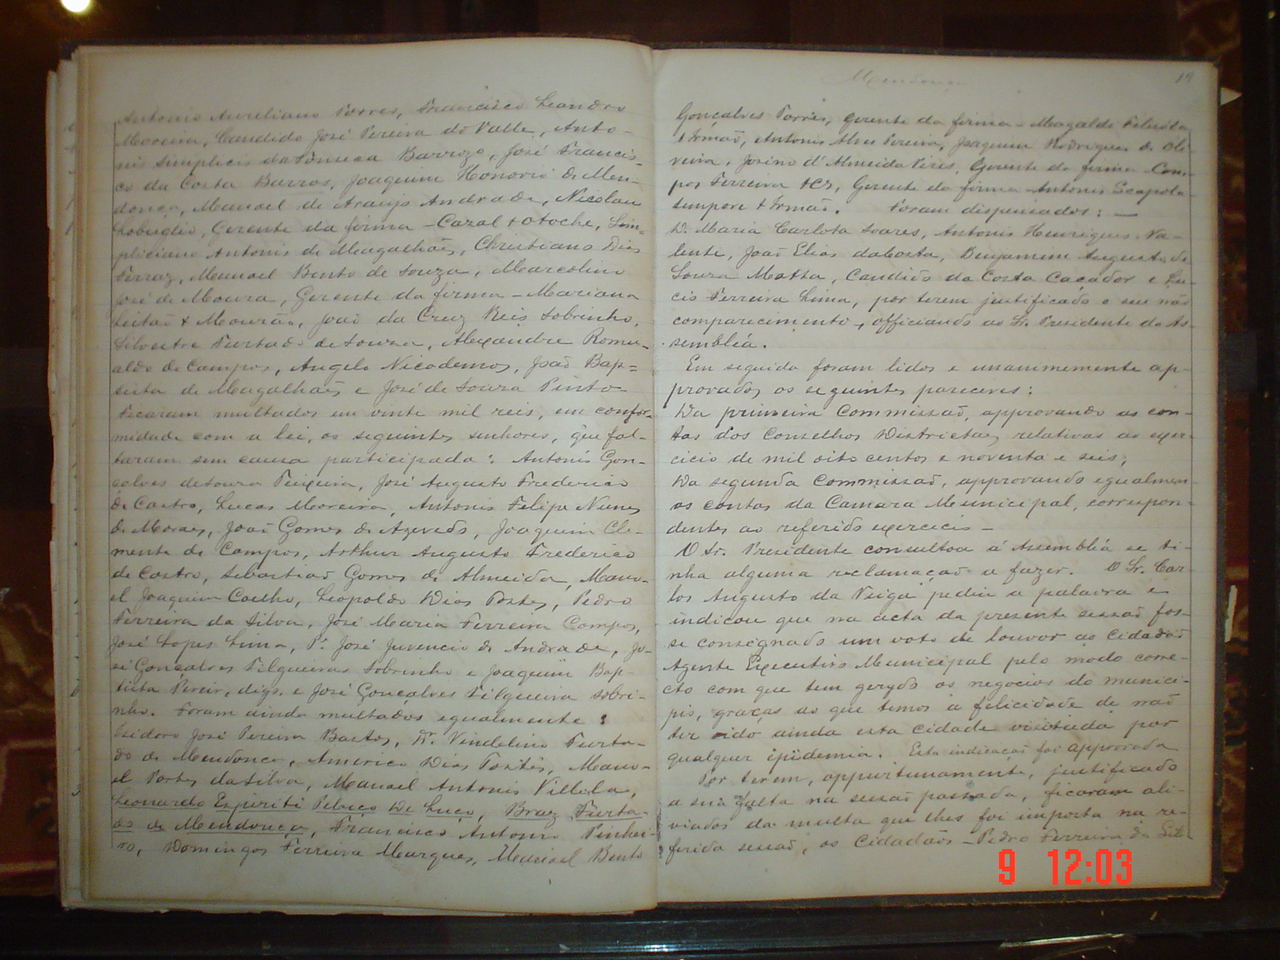 Antonio Aureliano Torres, Francisco Leandro
Moreira, Candido José Pereira do Valle, Anto-
nio Simplicio da Fonseca Barrozo, José Francis-
co da Costa Barros, Joaquim Honorio de Men-
donça, Manoel de Araujo Andrade, Nicolau
Lobuglio, Gerente da firma - Cazal & Otoche, Sim-
pliciano Antonio de Magalhães, Christiano Dias
Ferraz, Manoel Bento de Souza, Marcolino
José de Moura, Gerente da firma - Mariana
Leitão & Mourão, João da Cruz Reis Sobrinho,
Silvestre Furtado de Souza, Alexandre Romu-
aldo de Campos, Angelo Nicodemos, João Bap-
tista de Magalhães e José de Souza Pinto
Ficaram multados em vinte mil reis, em confor-
midade com a lei, os seguintes senhores, que fal-
taram sem causa participada: Antonio Gon-
çalves de Souza Teixeira, José Augusto Frederico
de Castro, Lucas Moreira, Antonio Felipe Nunes
de Moraes, João Gomes de Azevedo, Joaquim Cle-
mente de Campos, Arthur Augusto Frederico
de Castro, Sebastião Gomes de Almeida, Mano-
el Joaquim Coelho, Leopoldo Dias Portes, Pedro
Ferreira da Silva, José Maria Ferreira Campos,
José Lopes Lima, Pe. José Juvencio de Andrade, Jo-
sé Gonçalves Filgueiras Sobrinho e Joaquim Bap-
tista Pereir, digo, e José Gonçalves Filgueira Sobri-
nho. Foram ainda multados egualmente:
Isidoro José Pereira Bastos, Dr. Vindelino Furta-
do de Mendonça, Americo Dias Portes, Mano-
el Portes da Silva, Manoel Antonio Villela,
Leonardo Espiriti De Luca, Braz Furta-
do de Mendonça, Francisco Antonio Pinhei-
ro, Domingos Ferreira Marques, Manoel Bento
Mendonça
19
Gonçalves Torres, gerente da firma - Magaldi
& Irmão, Antonio Pereira, Joaquim Rodrigues de Oli-
veira, Josino d'Almeida Pires, Gerente da firma - Cam-
pos Ferreira & Ca, Gerente da firma - Antonio Scapola
sempore & Irmão. Foram dispensados: -
D. Maria Carlota Soares, Antonio Henriques Va-
lente, João Elias da Costa, Benjamim Augusto de
Souza Matta, Candido da Costa Caçador e Lu-
cio Ferreira Lima, por terem justificado o seu não
comparecimento, officiando ao Sr. Presidente da As-
semblea.
Em seguida foram lidos e unanimemente ap-
provados os seguintes pareceres:
Da primeira Commissão, approvando as con-
tas dos Conselhos Districtaes relativas ao exer-
cicio de mil oito centos e noventa e seis;
Da segunda Commissão, approvando egualmen-
as contas da Camara Municipal, correspon-
dentes ao referido exercicio -
O Sr. Presidente consultou á Assembléa se ti-
nha alguma reclamação a fazer. O Sr. Car-
los Augusto da Veiga pediu a palavra e
indicou que na acta da presente sessão fos-
se consignado um voto de louvor ao Cidadão
Agente Executivo Municipal pelo modo corre-
cto com que tem gerydo os negocios do munici-
pio, graças ao que temos a felicidade de não
ter sido ainda esta cidade visitada por
qualquer epidemia. Esta indicação foi approvada
Por terem, opportunamente, justificado
a sua falta na sessão passada, ficaram ali-
viados da multa que lhes foi imposta na re-
ferida sessão, os Cidadãos - Pedro Ferreira da Sil
9 12:03